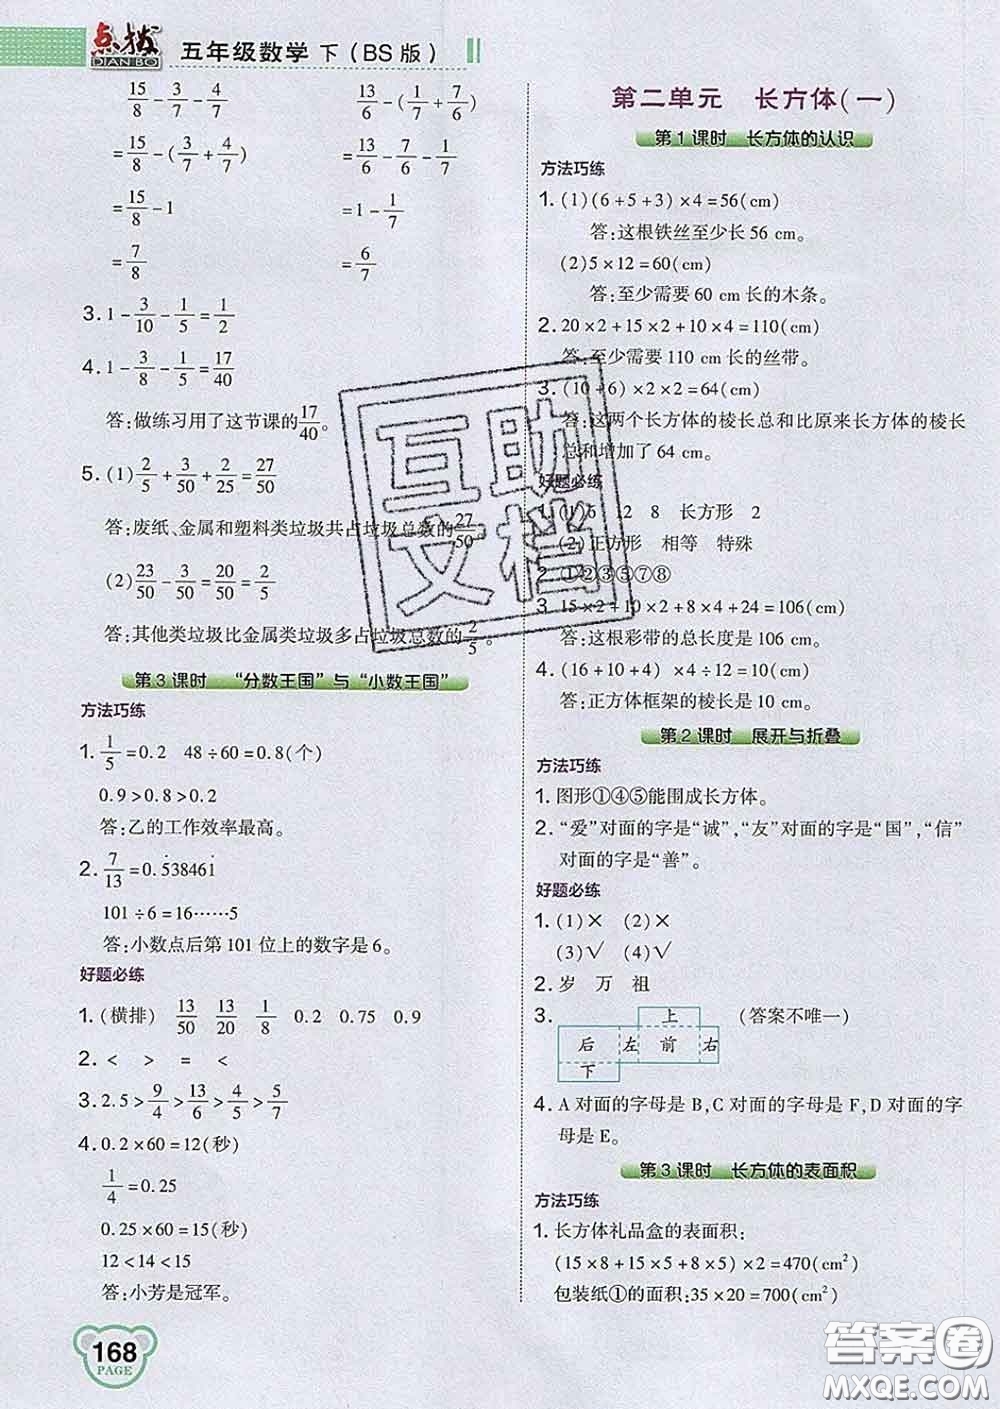 点拨
DIAN BO
五年级数学 下（BS 版）
15/8 - 3/7 - 4/7
= 15/8 - (3/7 + 4/7)
= 15/8 - 1
= 7/8
13/6 - (1/7 + 7/6)
= 13/6 - 7/6 - 1/7
= 1 - 1/7
= 6/7
3. 1 - 3/10 - 1/5 = 1/2
4. 1 - 3/8 - 1/5 = 17/40
答:做练习用了这节课的17/40。
5. (1) 2/5 + 3/50 + 2/25 = 27/50
答:废纸、金属和塑料类垃圾共占垃圾总数的27/50。
(2) 23/50 - 3/50 = 20/50 = 2/5
答:其他类垃圾比金属类垃圾多占垃圾总数的2/5。
第 3 课时 “分数王国”与“小数王国”
方法巧练
1. 1/5 = 0.2 48÷60=0.8(个)
0.9>0.8>0.2
答:乙的工作效率最高。
2. 7/13 = 0.5̇38461̇
101÷6=16……5
答:小数点后第 101 位上的数字是 6。
好题必练
1. (横排) 13/50 13/20 1/8 0.2 0.75 0.9
2. < > = <
3. 2.5 > 9/4 > 13/6 > 4/5 > 5/7
4. 0.2×60=12(秒)
1/4 = 0.25
0.25×60=15(秒)
12<14<15
答:小芳是冠军。
168
PAGE
第二单元 长方体(一)
第 1 课时 长方体的认识
方法巧练
1. (1)(6+5+3)×4=56(cm)
答:这根铁丝至少长 56 cm。
(2)5×12=60(cm)
答:至少需要 60 cm 长的木条。
2. 20×2+15×2+10×4=110(cm)
答:至少需要 110 cm 长的丝带。
3. (10+6)×2×2=64(cm)
答:这两个长方体的棱长总和比原来长方体的棱长
总和增加了 64 cm。
好题必练
1. (1)6 12 8 长方形 2
(2)正方形 相等 特殊
2. ①②③⑤⑦⑧
3. 15×2+10×2+8×4+24=106(cm)
答:这根彩带的总长度是 106 cm。
4. (16+10+4)×4÷12=10(cm)
答:正方体框架的棱长是 10 cm。
第 2 课时 展开与折叠
方法巧练
1. 图形①④⑤能围成长方体。
2. “爱”对面的字是“诚”,“友”对面的字是“国”,“信”
对面的字是“善”。
好题必练
1. (1)× (2)×
(3)√ (4)√
2. 岁 万 祖
3. 上 (答案不唯一)
后 左 前 右
下
4. A 对面的字母是 B,C 对面的字母是 F,D 对面的字
母是 E。
第 3 课时 长方体的表面积
方法巧练
1. 长方体礼品盒的表面积:
(15×8+15×5+8×5)×2=470(cm²)
包装纸①的面积:35×20=700(cm²)
互助
文档
答案圈
MXQE.COM